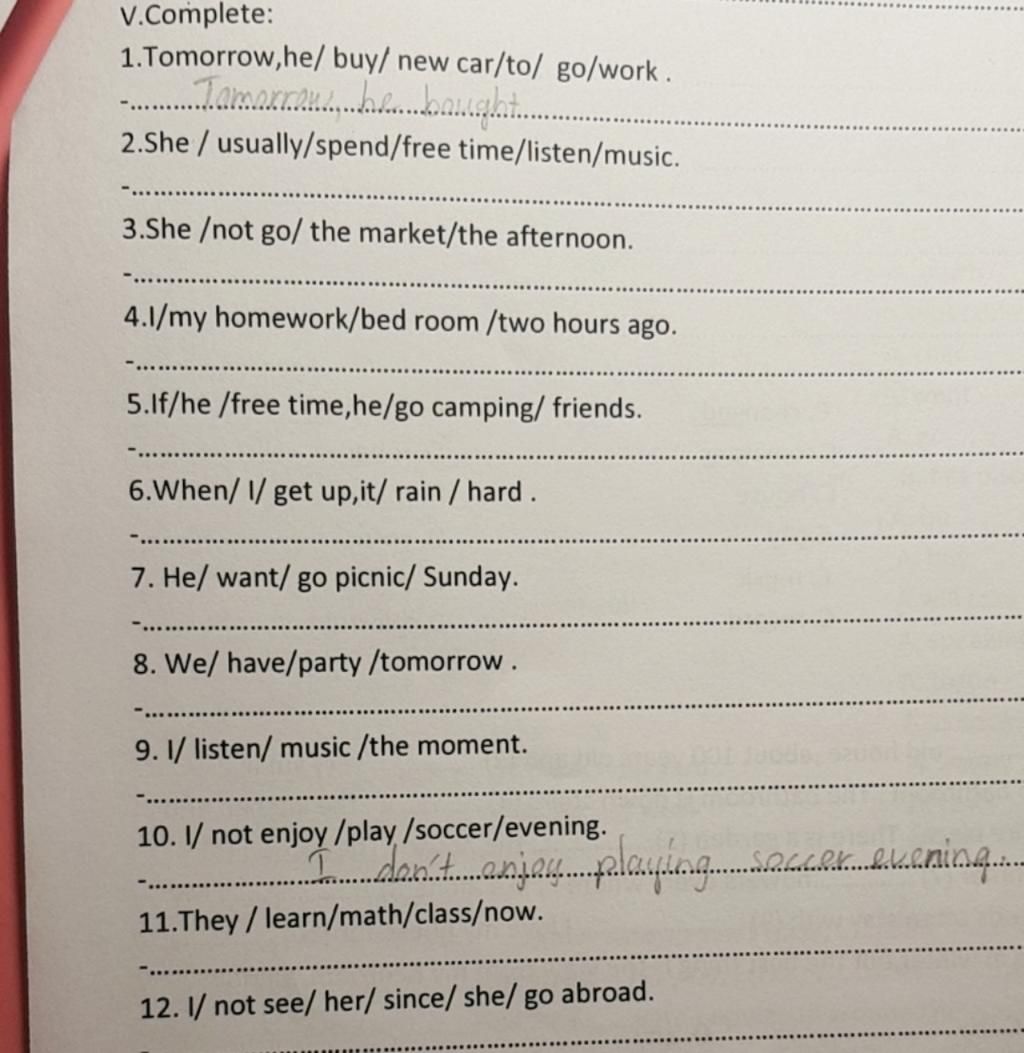 V.Complete:
1.Tomorrow,he/ buy/ new car/to/ go/work .
-.......Tomorrow, he bought..............................
2.She / usually/spend/free time/listen/music.
-..............................................................
3.She /not go/ the market/the afternoon.
-..............................................................
4.I/my homework/bed room /two hours ago.
-..............................................................
5.If/he /free time,he/go camping/ friends.
-..............................................................
6.When/ I/ get up,it/ rain / hard .
-..............................................................
7. He/ want/ go picnic/ Sunday.
-..............................................................
8. We/ have/party /tomorrow .
-..............................................................
9. I/ listen/ music /the moment.
-..............................................................
10. I/ not enjoy /play /soccer/evening.
-..............I don't enjoy playing soccer evening.
11.They / learn/math/class/now.
-..............................................................
12. I/ not see/ her/ since/ she/ go abroad.